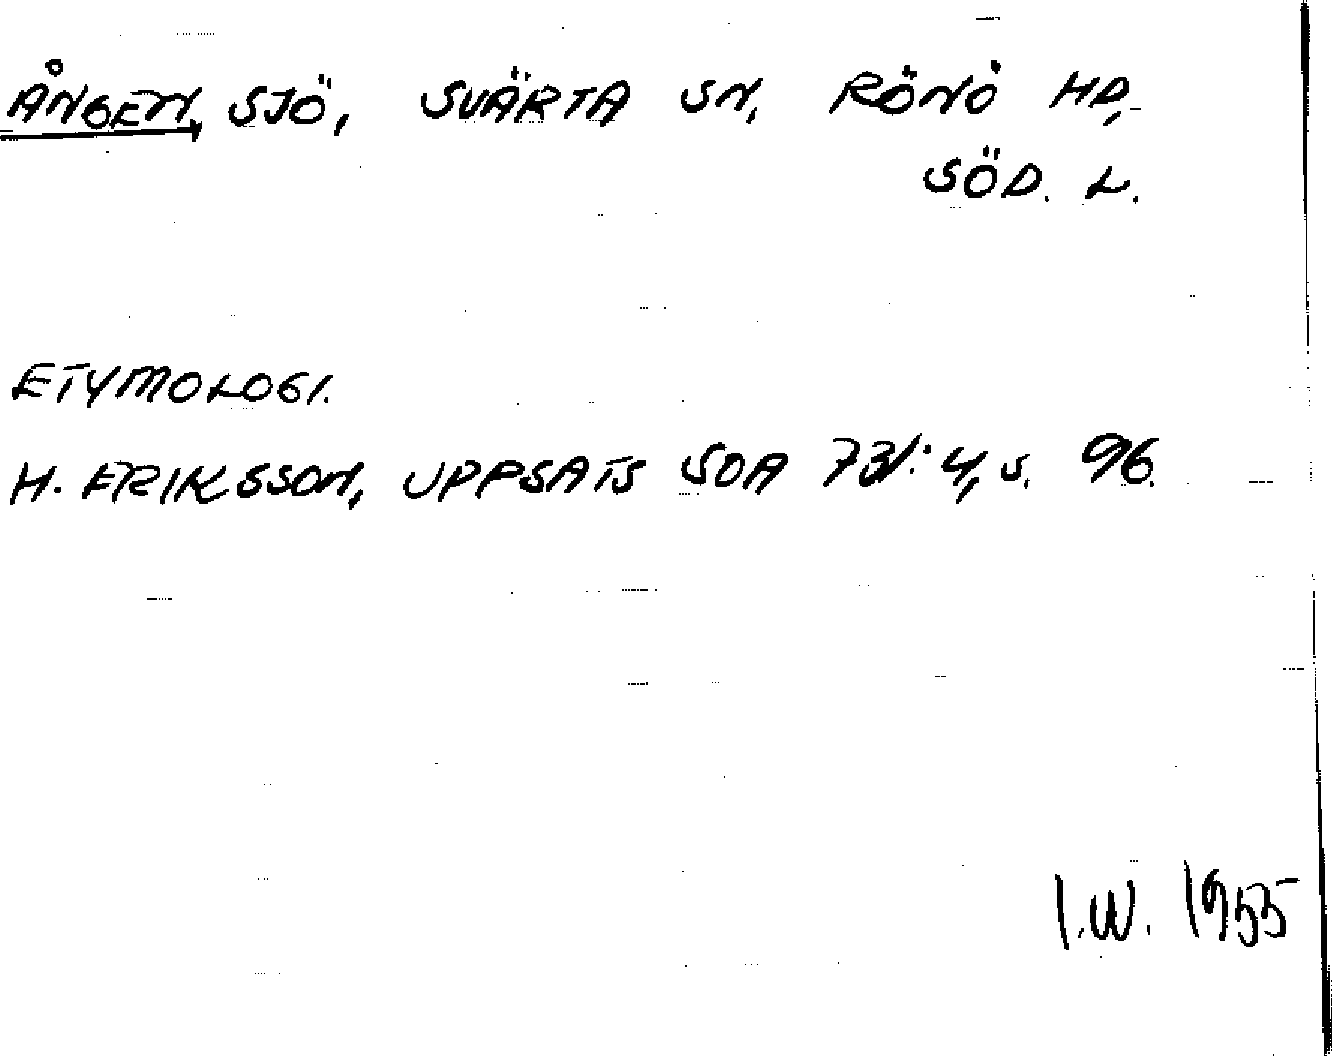 ÅNGEN, SJÖ, SVÄRTA SN, RÖNÖ HD,
SÖD. L.
ETYMOLOGI.
H. ERIKSSON, UPPSATS SOA 731:4, s. 96.
I.W. 1955